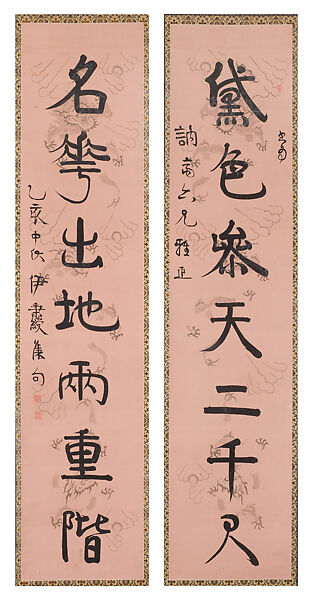 黛色參天二千尺
訥齋六兄雅正
名華出地兩重階
乙亥中秋伊
集句